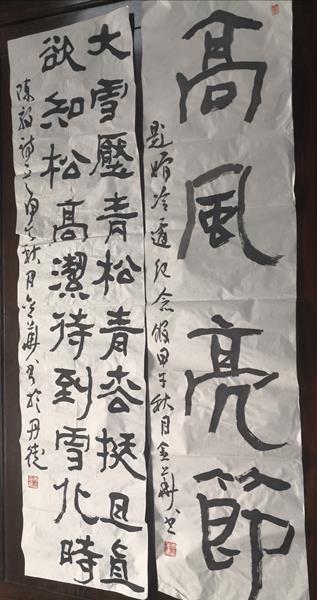 高風亮節
紀念館甲午秋月金華书
大雪壓青松青枩挺且直
欲知松高潔待到雪化時
陳毅詩甲午秋月金華书於丹徒